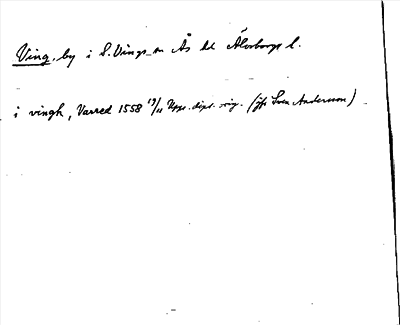 Ving, by i S. Vings sn Ås hd Älvsborgs l.
i vingh, Varred 1558 19/11 Upps. dipl. orig. (jfr Sven Andersson)